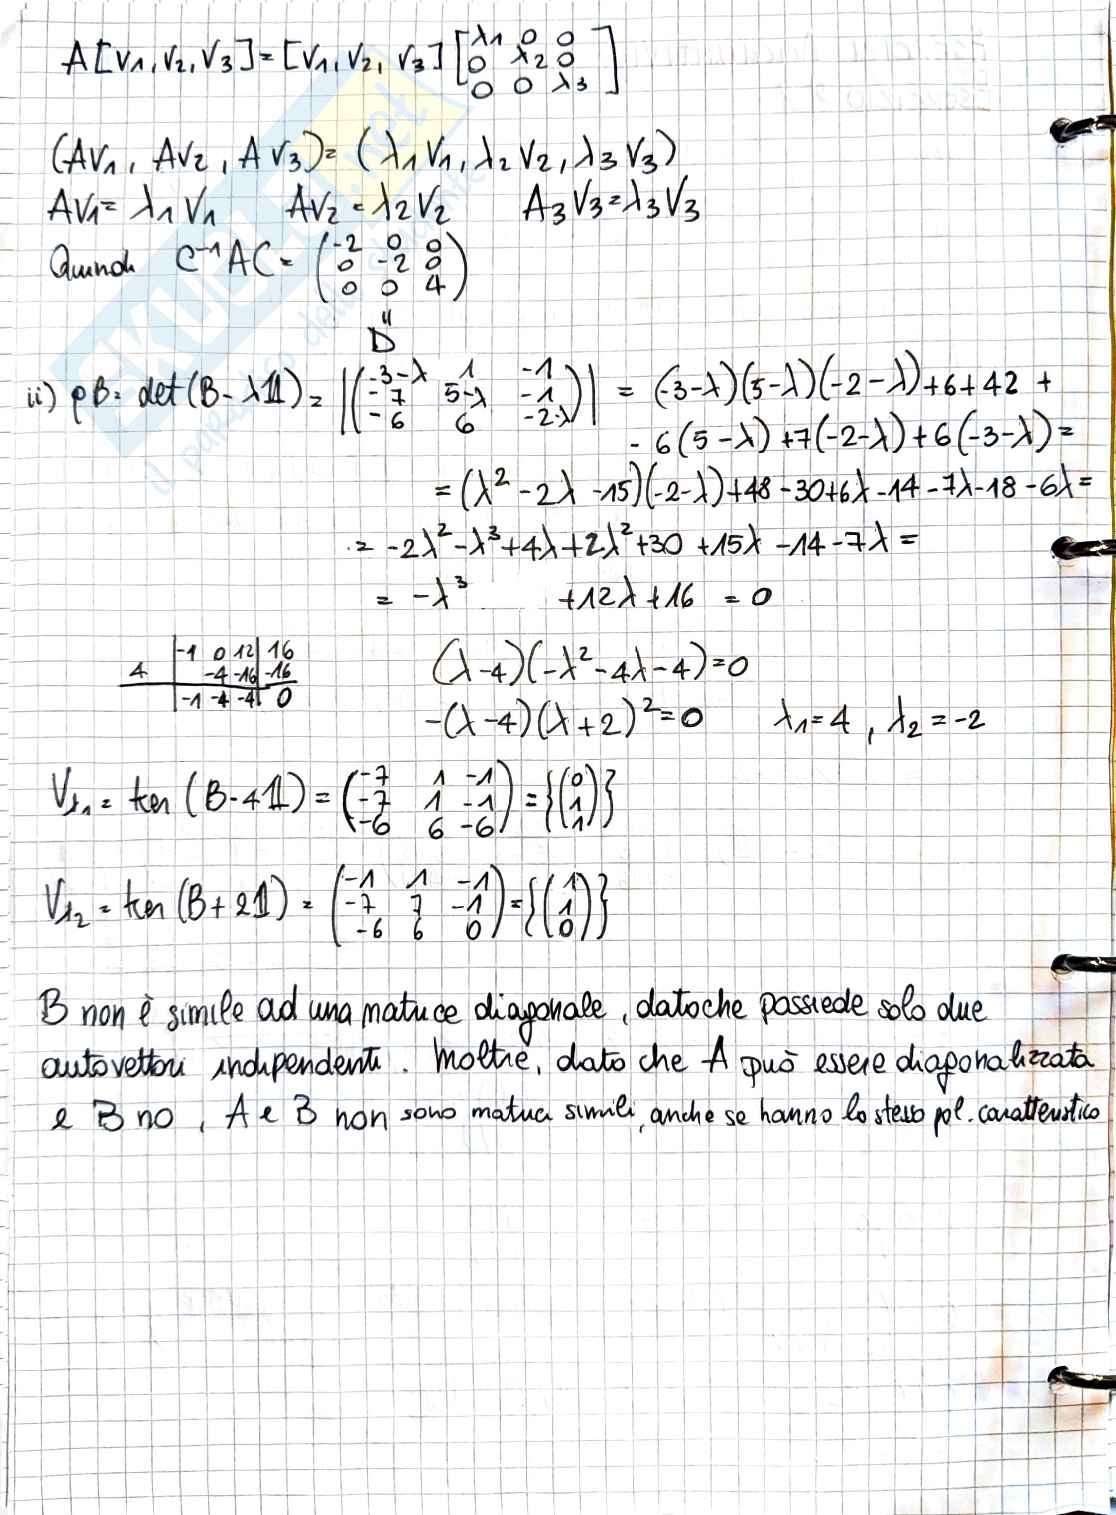 A[V1, V2, V3] = [V1, V2, V3] [λ1 0 0
0 λ2 0
0 0 λ3]
(AV1, AV2, AV3) = (λ1V1, λ2V2, λ3V3)
AV1 = λ1V1 AV2 = λ2V2 A3V3 = λ3V3
Quindi C⁻¹AC = (-2 0 0
0 -2 0
0 0 4)
"
D
ii) pB = det(B-λ𝟙) = |(-3-λ 1 -1
-7 5-λ -1
-6 6 -2-λ)| = (-3-λ)(5-λ)(-2-λ)+6+42 +
- 6(5-λ)+7(-2-λ)+6(-3-λ) =
= (λ²-2λ-15)(-2-λ)+48-30+6λ-14-7λ-18-6λ =
= -2λ²-λ³+4λ+2λ²+30+15λ-14-7λ =
= -λ³ +12λ+16 = 0
-1 0 12 16
4 -4 -16 -16
-1 -4 -4 0
(λ-4)(-λ²-4λ-4)=0
-(λ-4)(λ+2)²=0 λ1=4, λ2=-2
Vλ1 = ker (B-4𝟙) = (-7 1 -1
-7 1 -1
-6 6 -6) = {(0
1
1)}
Vλ2 = ker (B+2𝟙) = (-1 1 -1
-7 7 -1
-6 6 0) = {(1
1
0)}
B non è simile ad una matrice diagonale, datoche possiede solo due
autovettori indipendenti. Inoltre, dato che A può essere diagonalizzata
e B no, A e B non sono matrici simili, anche se hanno lo stesso pol. caratteristico
SKUOLA.net